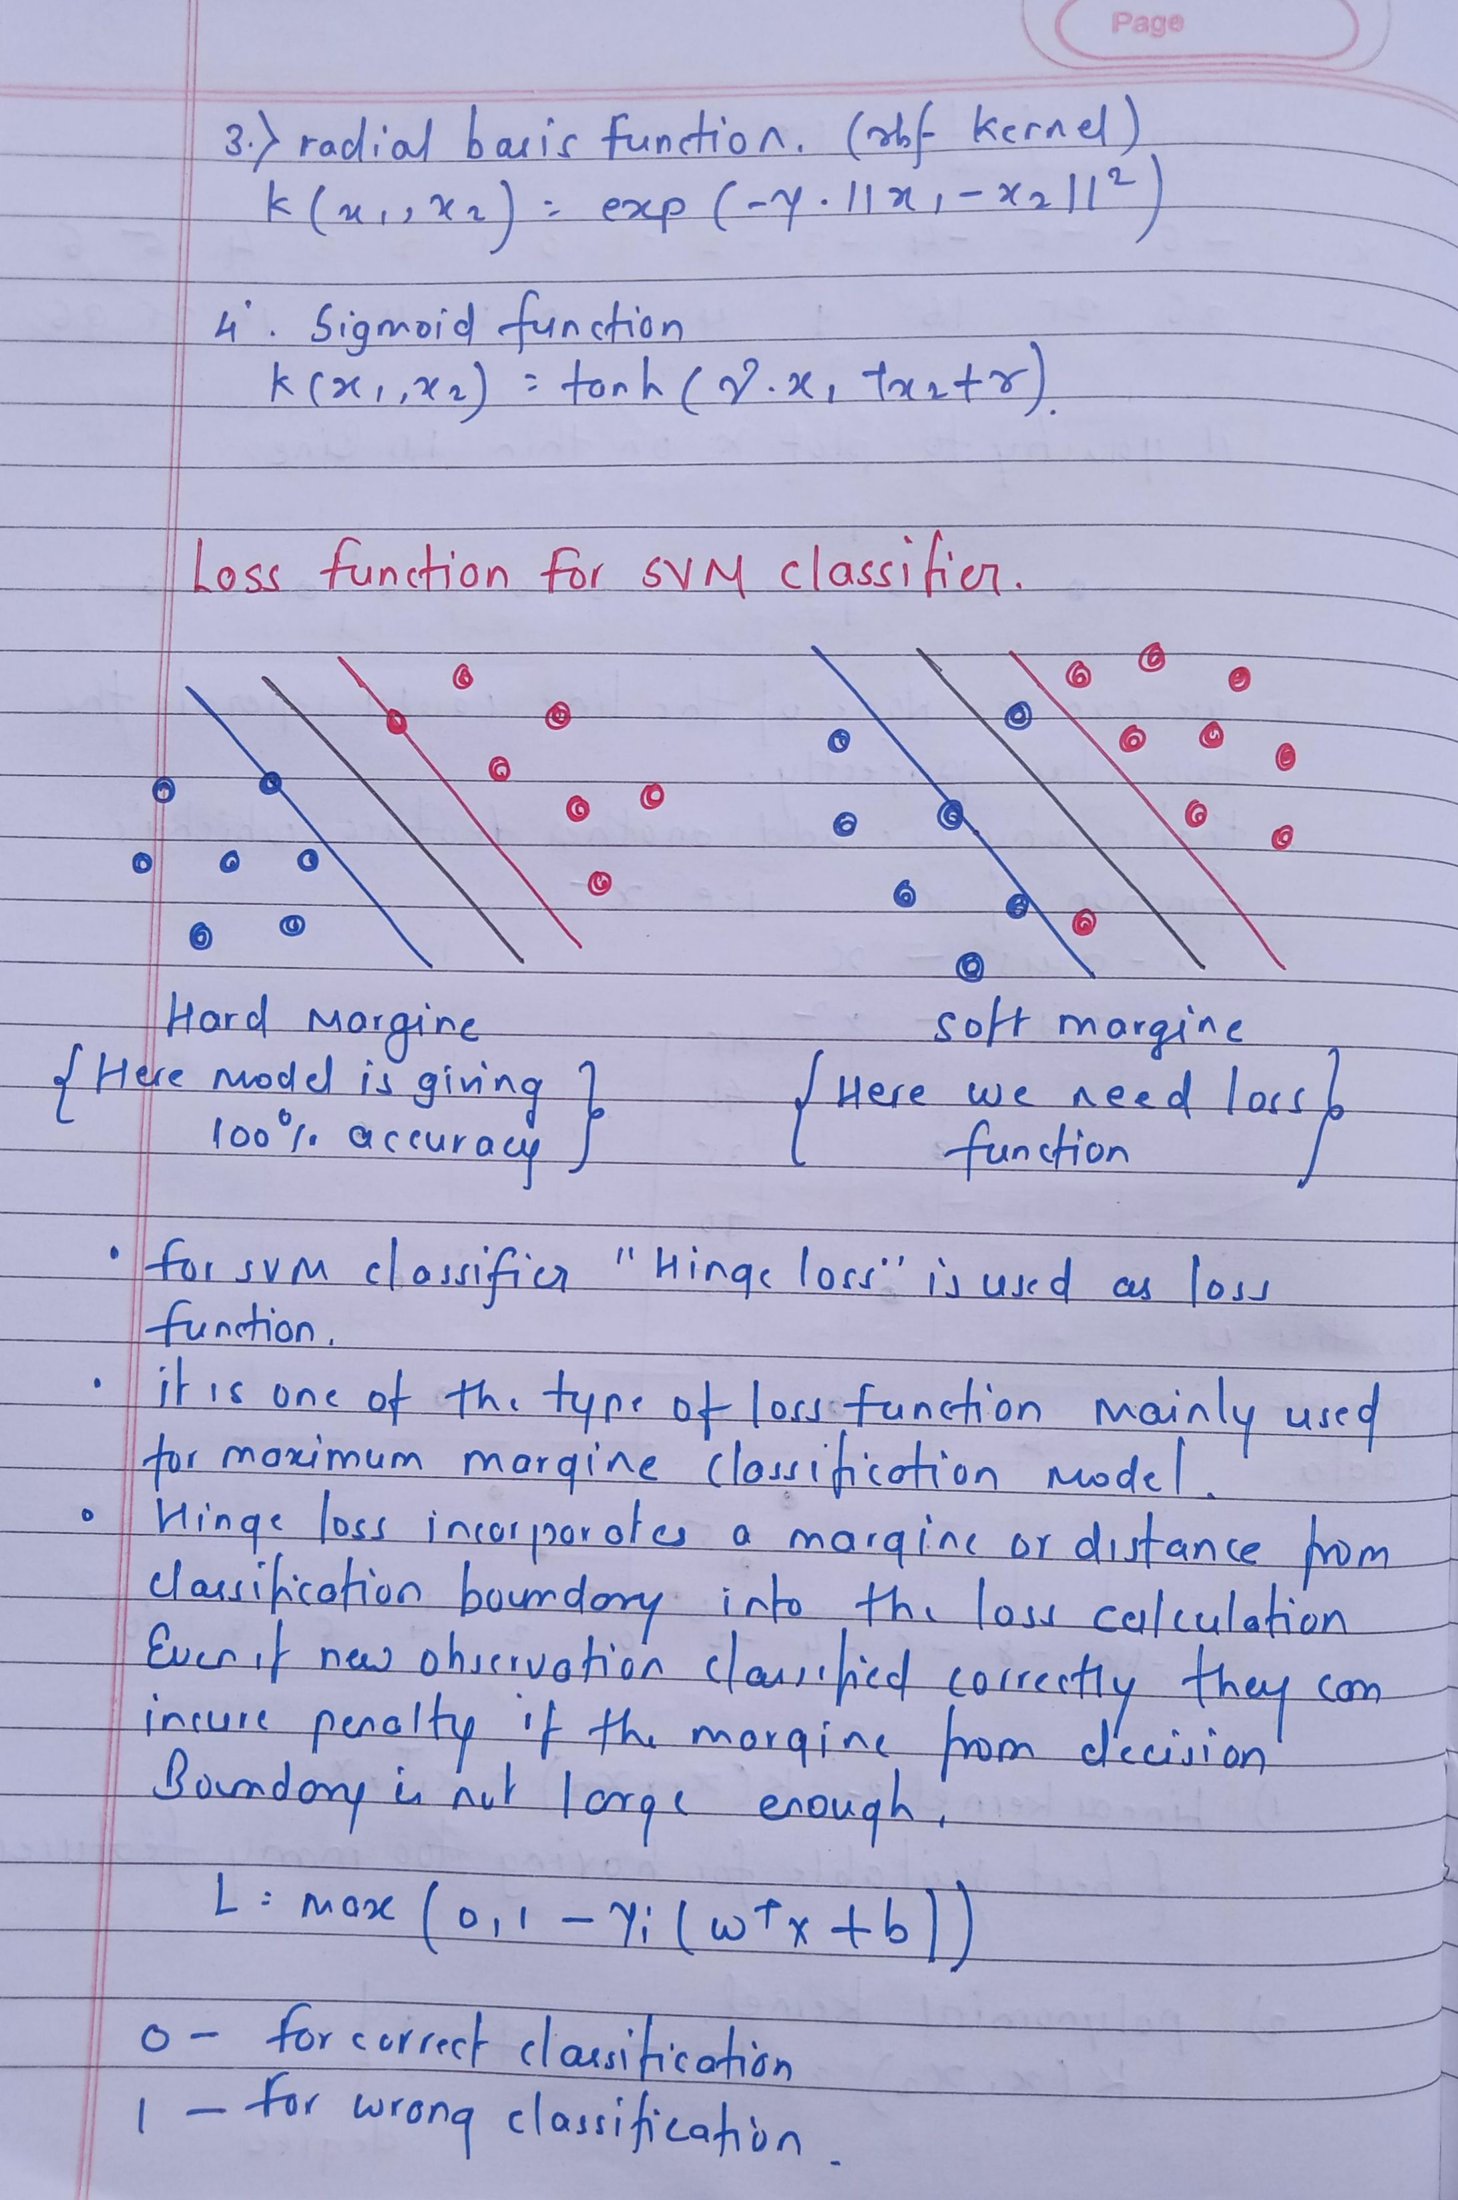 Page
3.) radial basis function. (rbf kernel)
k(x₁, x₂) = exp(-γ.||x₁ - x₂||²)
4. Sigmoid function
k(x₁, x₂) = tanh(γ.x₁ᵀx₂+r).
Loss function for SVM classifier.
Hard Margine
soft margine
{Here model is giving
100% accuracy}
{Here we need loss
function}
• for SVM classifier "Hinge loss" is used as loss
function.
• it is one of the type of loss function mainly used
for maximum margine classification model.
• Hinge loss incorporates a margine or distance from
classification boundary into the loss calculation
Even if new observation classified correctly they can
incure penalty if the margine from decision
Boundary is not large enough.
L = max(0, 1 - yi(wᵀx + b))
0 - for correct classification
1 - for wrong classification.